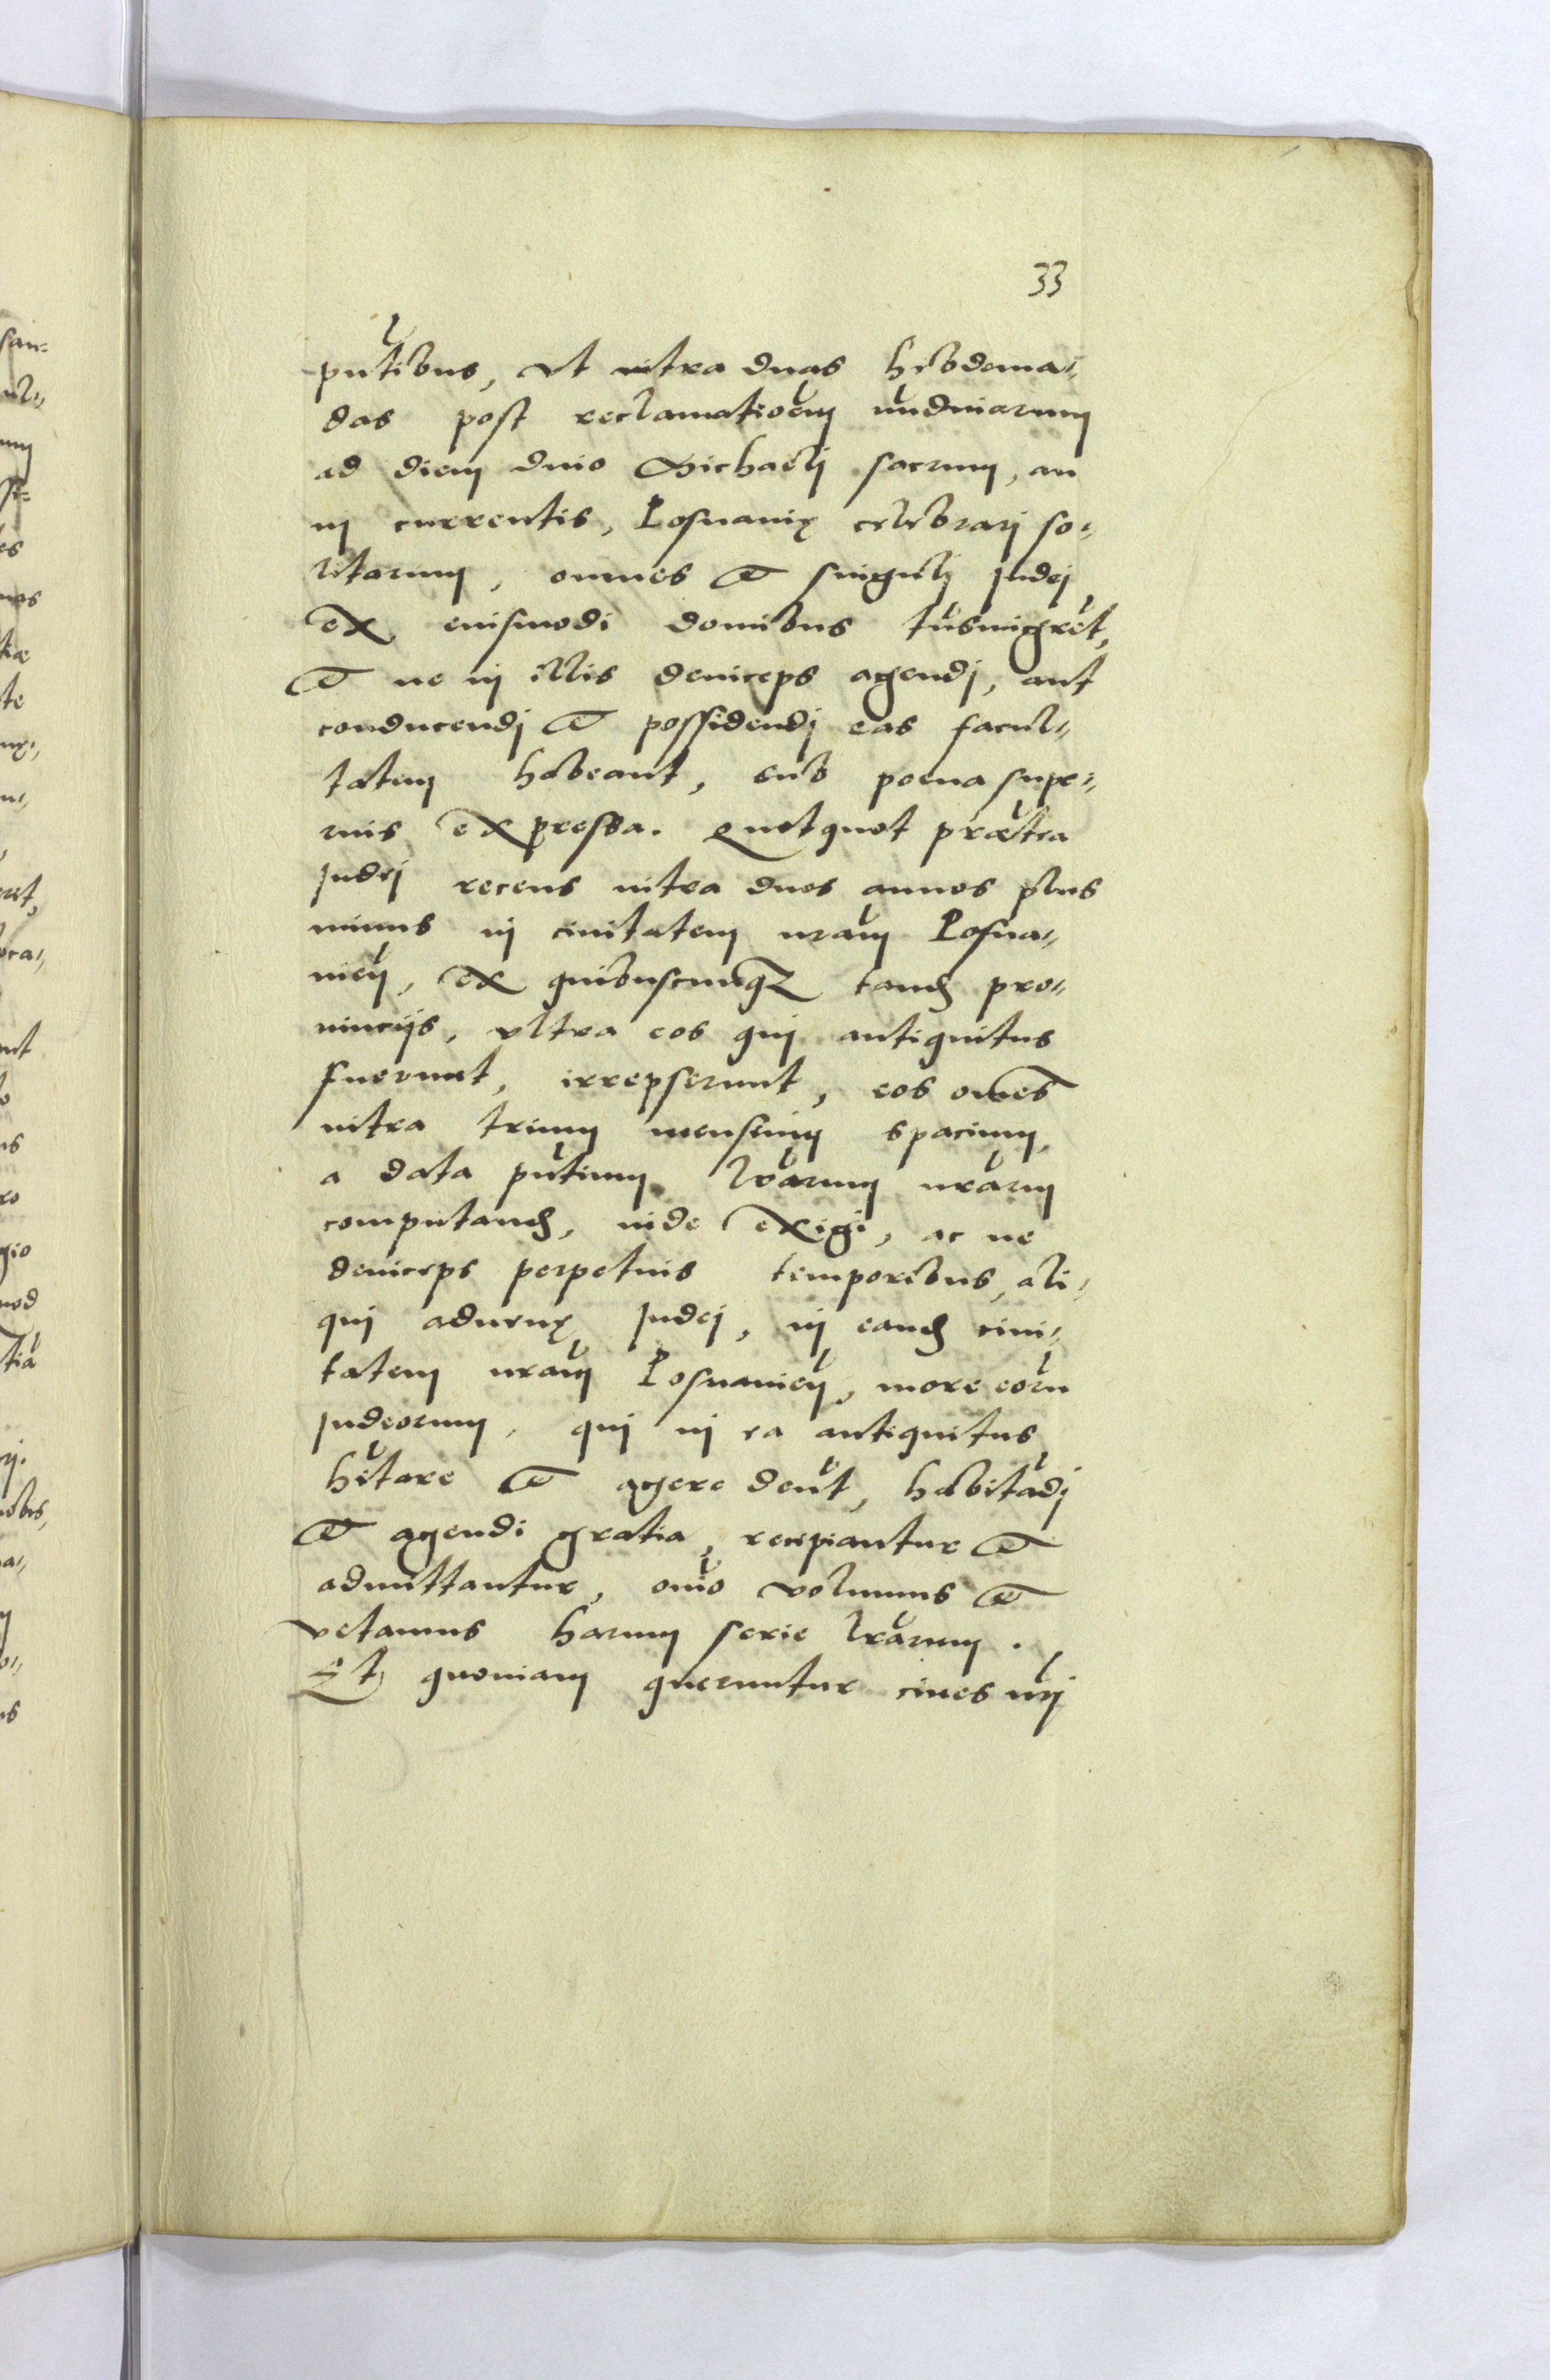 33
pñtibus, vt intra duas hebdoma„
das post reclamatioẽm nũdinarum
ad diem diuo Michaeli sacrum, an
ni currentis, Posnanię celebrari so„
litarum, omnes et singuli Judei
ex eiusmodi domibus trãsmigrẽt,
et ne in illis deinceps agendi, aut
conducendi et possidendi eas facul„
tatem habeant, sub poena supe„
rius expressa. Quotquot prætrea
Judei recens intra duos annos plus
minus in ciuitatem nrãm Posna„
nieñ, ex quibuscunqꝫ tand pro„
uincijs, vltra eos qui antiquitus
fuerunt, irrepserunt, eos om̃es
intra trium mensium spacium,
a data pñtium lrãrum nrãrum
computand, inde exigi, ac ne
deinceps perpetuis temporibus, ali„
qui aduenę Judei, in eand ciui„
tatem nrãm Posnanieñ, more eorũ
Judeorum, qui in ea antiquitus
hĩtare et agere debẽt, habitãdi
et agendi gratia, recipiantur et
admittantur, om̃io volumus et
vetamus harum serie lrãrum.
Et quoniam queruntur ciues nr̃i